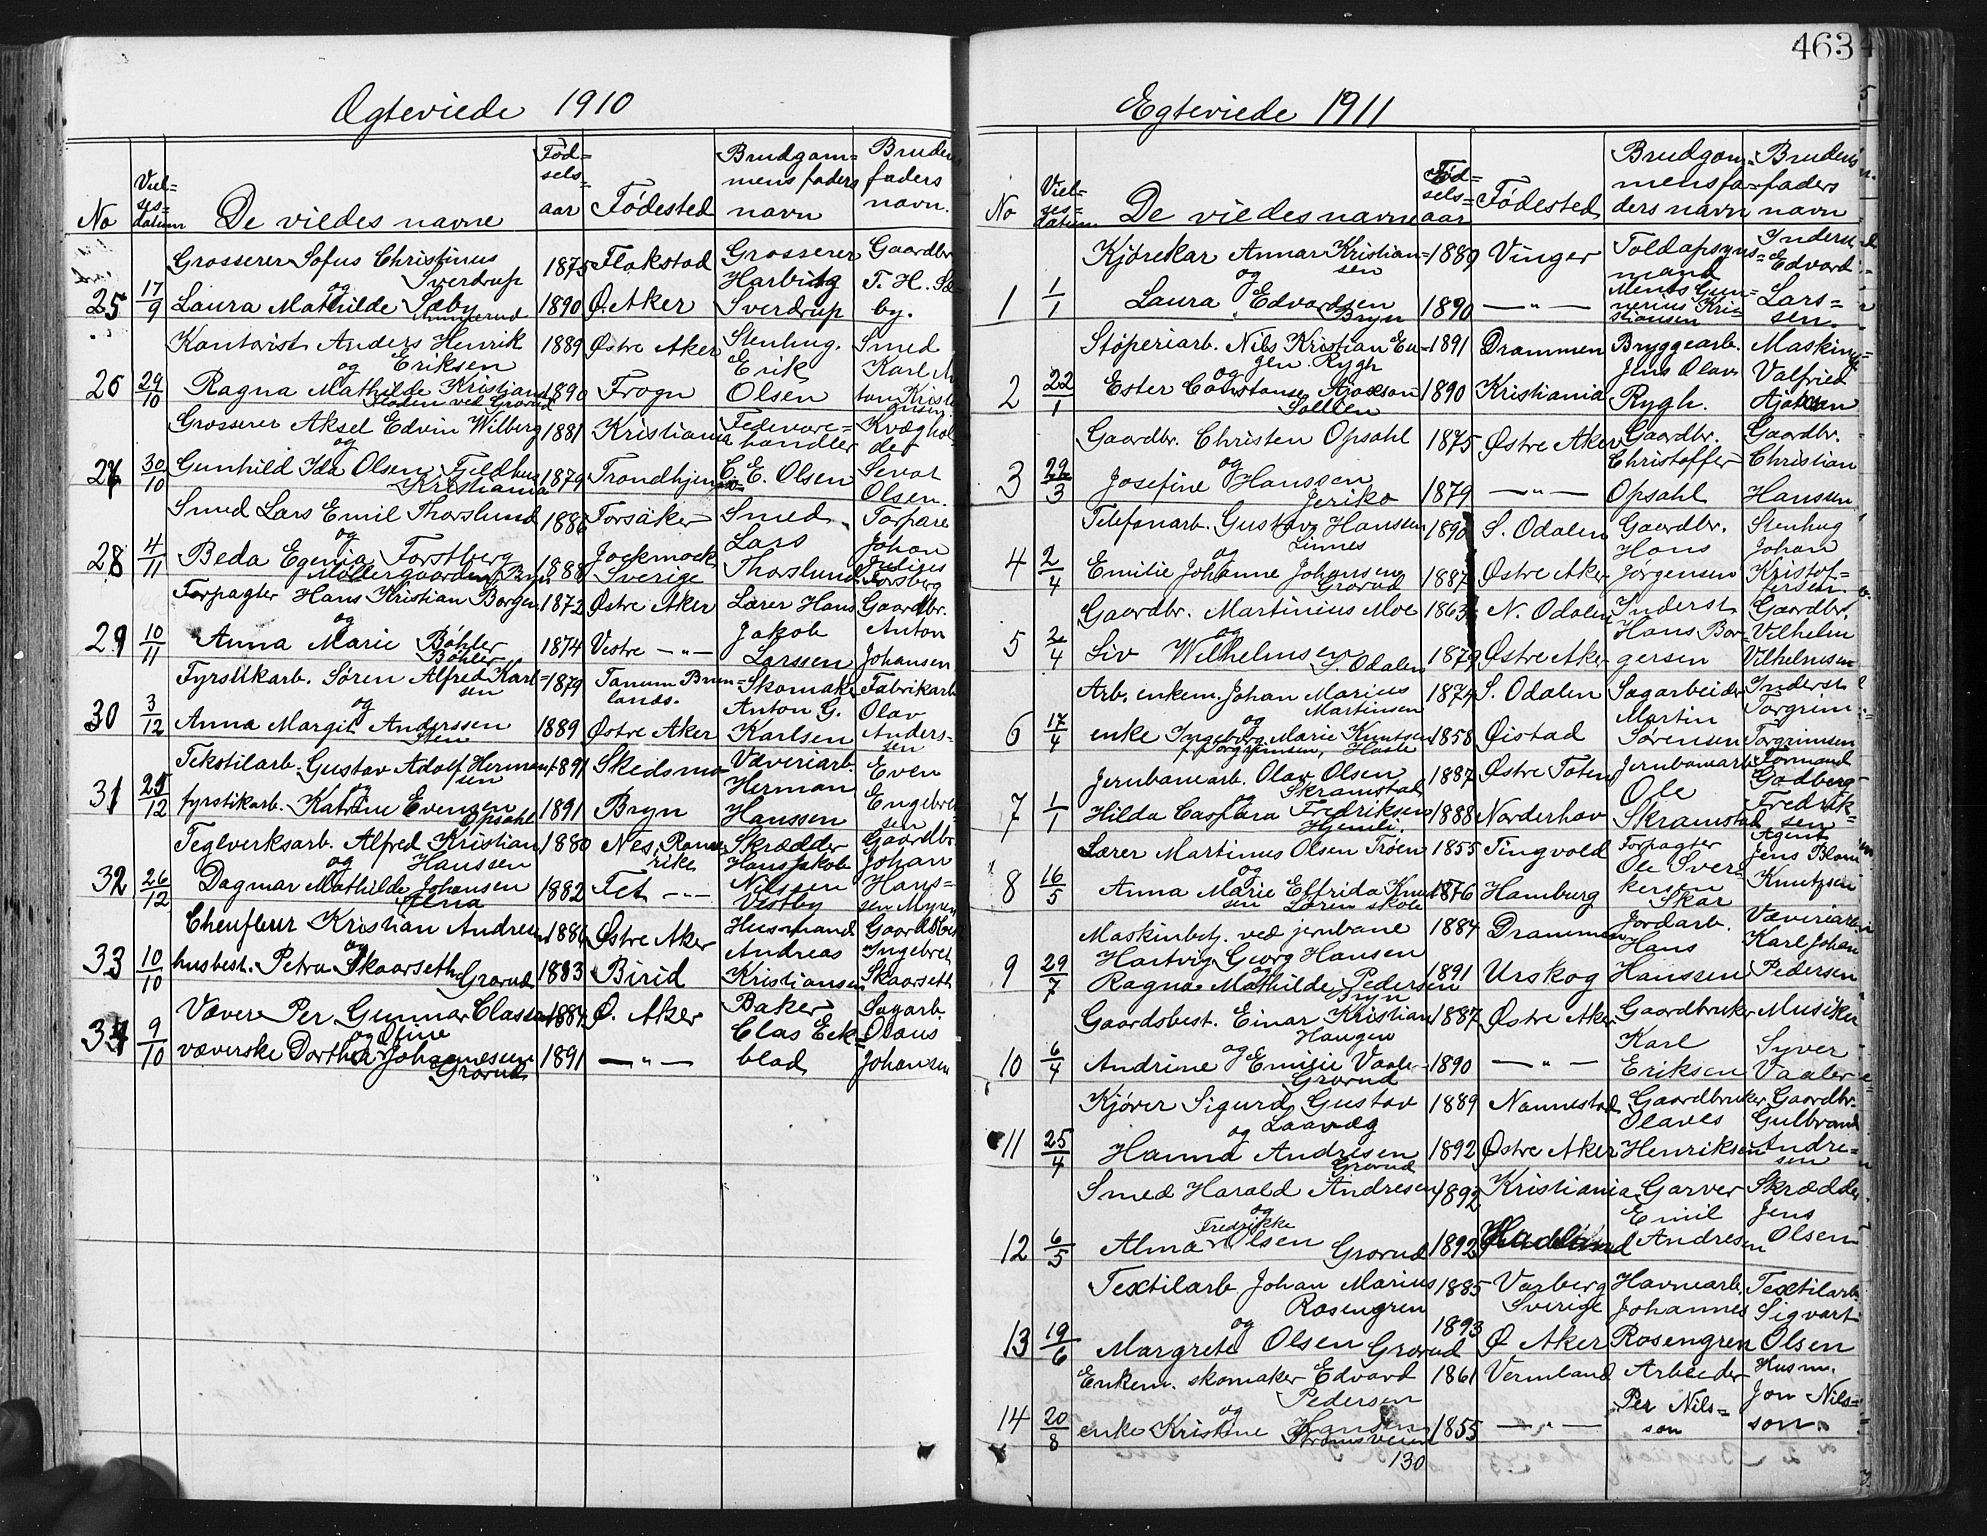 463
Ægteviede 1910
No
Viel-
ses-
datum
De viedes navne
Fød-
sels-
aar
Fødested
Brudgom-
mens faders
navn
Brudens
faders
navn.
25
17/9
Grosserer Sofus Christinus
Sverdrup
og
Laura Mathilde Sæby
1875 Flakstad
1890 Ø. Aker
Grosserer
Harbitz
Sverdrup
Gaardbr.
T. H. Sæ-
by.
26
29/10
Kontorist Anders Henrik
Eriksen
og
Ragna Mathilde Kristians
Floden ved Grorud
1889 Østre Aker
1890 Frogn
Stenhug.
Erik
Olsen
Smed
Karl An-
ton Kristi-
ansen
27
30/10
Grosserer Aksel Edvin Wilberg
og
Gunhild Ida Olsen
Kristiania
1881 Kristiania
1879 Trondhjem
Fedevare-
handler
C. E. Olsen
Kvæghol-
der
Olsen.
28
4/11
Smed Lars Emil Thorslund
og
Beda Egenia Forstberg
Møllergaarden, Bryn
1886 Torsåker
1888 Jockmock
Sverige
Smed
Lars
Thorslund
Torpare
Johan
Forsberg
29
10/11
Forpagter Hans Kristian Borgen
og
Anna Marie Bøhler
Bøhler
1872 Østre Aker
1874 Vestre —"—
Lærer Hans
Jakob
Larssen
Gaardbr.
Anton
Johansen
30
3/12
Fyrstikarb. Søren Alfred Karl-
sen
og
Anna Margit Anderssen
1879 Tanum Brun-
lands.
1889 Østre Aker
Skomaker
Anton G.
Karlsen
Fabrikarb
Olav
Anders-
sen
31
25/12
Tekstilarb. Gustav Adolf Herman-
sen
og
fyrstikarb. Katrine Evensen
Opsahl
1891 Skedsmo
1891 Bryn
Væveriarb.
Herman
Hanssen
Even
Engebret-
sen
32
26/12
Teglverksarb. Alfred Kristian
Hanssen
og
Dagmar Mathilde Johansen
Alna
1880 Nes, Rome-
rike
1882 Fet —"—
Skrædder
Hans Jakob
Nilssen
Vestby
Gaardbr.
Johan
Hans-
sen Myren
33
10/10
Chauffeur Kristian Andresen
og
husbest. Petra Skaarseth
Grorud
1886 Østre Aker
1883 Birid
Husmand
Andreas
Kristiansen
Ingebret
Skaarseth
34
9/10
Væver Per Gunnar Classon
og Ofine
væverske Dorthea Johannesen
Grorud
1884 Ø. Aker
1891 —"—
Baker
Clas Eck-
blad
Sagarb.
Olaus
Johansen
Egteviede 1911
No
Viel-
ses-
datum
De viedes navne
Fød-
sels-
aar
Fødested
Brudgom-
mens fa-
ders navn
Brudens
faders
navn
1
1/1
Kjørekar Annar Kristian-
sen
og
Laura Edvardsen
Bryn
1889 Vinger
1890 —"—
Toldopsyns-
mand
Ments Gun-
nerius Kri-
stiansen
Inderst
Edvard
Lars-
sen.
2
22/1
Støperiarb. Nils Kristian Eu-
gen Rygh
og
Ester Constanse
1891 Drammen
1890 Kristiania
Bryggearb.
Jens Olav
Rygh.
Valfried
3
22/3
Gaardbr. Christen Opsahl
og
Josefine Hanssen
Jeriko
1875 Østre Aker
1879 —"—
Gaardbr.
Christoffer
Opsahl
Gaardbr.
Christian
Hanssen
4
2/4
Telefonarb. Gustav Hansen
Linnes
og
Emilie Johanne Johansen
Grorud
1890 S. Odalen
1887 Østre Aker
Gaardbr.
Hans
Jørgensen
Stenhug
Johan
Kristof-
fersen
5
2/4
Gaardbr. Martinius Moe
og
Siv Wilhelmsen
S. Odalen
1863 N. Odalen
1879 Østre Aker
Inderst
Hans Bor-
gersen
Gaardbr.
Vilhelm
Vilhelmsen
6
17/4
Arb. enkem. Johan Marius
Martinsen
og
enke Ingeborg Marie Knutsen
f. Torgrimsen, Hasle
1874 S. Odalen
1858 Øistad
Sagarbeider
Martin
Sørensen
Inderst
Torgrim
Torgrimsen
7
1/1
Jernbanearb. Olav Olsen
Skramstad
og
Hilda Caspara Fredriksen
Hjemli.
1887 Østre Toten
1888 Norderhov
Jernbanearb
Ole
Skramstad
Formand
Godberg
Fredrik-
sen
8
16/5
Lærer Martinus Olsen Trøen
og
Anna Marie Elfrida Knud-
sen Løren skole
1855 Tingvold
1876 Hamburg
Forpagter
Ole Sver-
kersen
Skar
Agent
Jens Blom
Knutzen
9
29/7
Maskinbetj. ved jernbane
Hartvig Georg Hansen
og
Ragna Mathilde Pedersen
Bryn
1884 Drammen
1891 Urskog
Jordarb.
Hans
Hanssen
Væveriarb
Karl Johan
Pedersen
10
6/4
Gaardsbest. Einar Kristian
Haugen
og
Andrine Emilie Vaaler
Grorud
1887 Østre Aker
1890 —"—
Gaardbruker
Karl
Eriksen
Musiker
Syver
Vaaler
11
25/4
Kjører Sigurd Gustav
Laavæg
og
Hanna Andresen
Grorud
1889 Nannestad
1892 Østre Aker
Gaardbruker
Olaves
Henriksen
Gaardbr.
Gulbrand
Andre-
sen
12
6/5
Smed Harald Andresen
og
Fredrikke
Alma Olsen
Grorud
1892 Kristiania
1892 Hadeland
Garver
Emil
Andresen
Skrædder
Jens
Olsen
13
19/6
Textilarb Johan Marius
Rosengren
og
Margrete Olsen Grorud
1885 Varberg
Sverige
1893 Ø Aker
Havnearb.
Johannes
Rosengren
Textilarb
Sigvart
Olsen
14
20/8
Enkem. skomaker Edvard
Pedersen
og
enke Kristine Hansen
Strømsveien
130
1861 Vermland
1855 —"—
Arbeider
Per Nils-
son
Husm.
Jon Nils-
son.